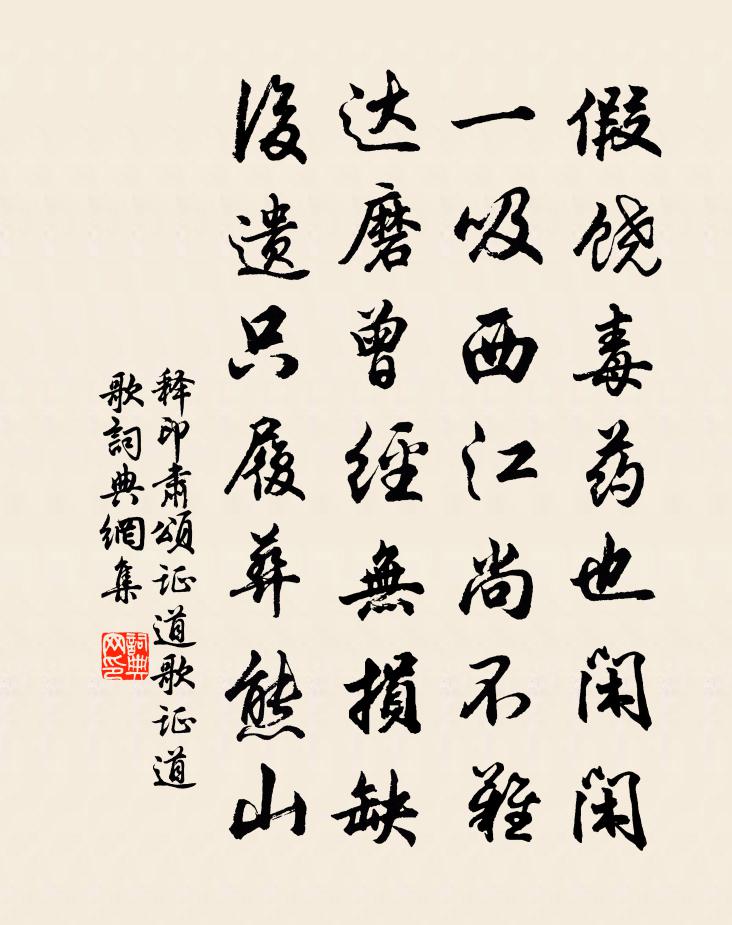 假饶毒药也闲闲
一吸西江尚不難
达磨曾經無損缺
後遗只履葬熊山
释印肃頌证道歌证道
歌詞典網集
詞典网印